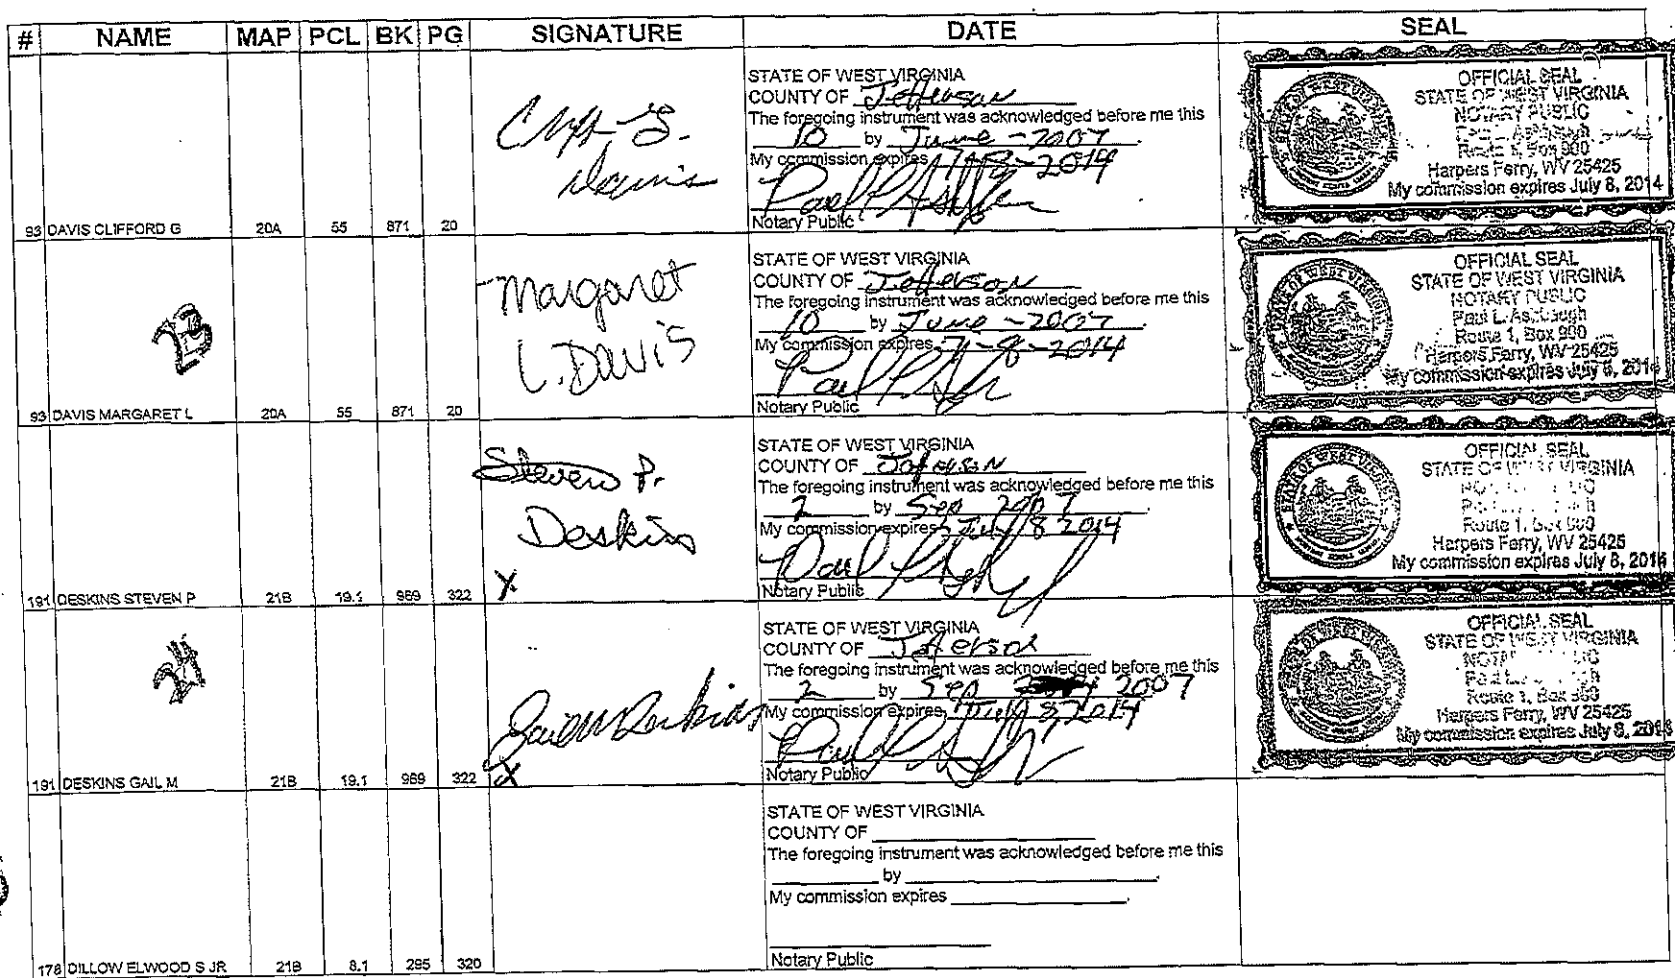 # NAME MAP PCL BK PG SIGNATURE DATE SEAL
93 DAVIS CLIFFORD G 20A 55 871 20
Davis
STATE OF WEST VIRGINIA
COUNTY OF Jefferson
The foregoing instrument was acknowledged before me this
10 by June - 2007
My commission expires 7-8-2014
Notary Public
OFFICIAL SEAL
STATE OF WEST VIRGINIA
NOTARY PUBLIC
Harpers Ferry, WV 25425
My commission expires July 8, 2014
93 DAVIS MARGARET L 20A 55 871 20
23
Margaret
L. Davis
STATE OF WEST VIRGINIA
COUNTY OF Jefferson
The foregoing instrument was acknowledged before me this
10 by June - 2007
My commission expires 7-8-2014
Notary Public
OFFICIAL SEAL
STATE OF WEST VIRGINIA
NOTARY PUBLIC
Paul L. Ashbaugh
Route 1, Box 900
Harpers Ferry, WV 25425
My commission expires July 8, 2014
191 DESKINS STEVEN P 21B 19.1 969 322
Steven P.
Deskins
X
STATE OF WEST VIRGINIA
COUNTY OF Jefferson
The foregoing instrument was acknowledged before me this
2 by Sep 2007
My commission expires July 8 2014
Notary Public
OFFICIAL SEAL
STATE OF WEST VIRGINIA
Route 1, Box 900
Harpers Ferry, WV 25425
My commission expires July 8, 2014
191 DESKINS GAIL M 21B 19.1 969 322
24
Gail M Deskins
X
STATE OF WEST VIRGINIA
COUNTY OF Jefferson
The foregoing instrument was acknowledged before me this
2 by Sep 2007
My commission expires July 8 2014
Notary Public
OFFICIAL SEAL
STATE OF WEST VIRGINIA
Route 1, Box 900
Harpers Ferry, WV 25425
My commission expires July 8, 2014
178 DILLOW ELWOOD S JR 21B 8.1 295 320
STATE OF WEST VIRGINIA
COUNTY OF
The foregoing instrument was acknowledged before me this
by
My commission expires
Notary Public